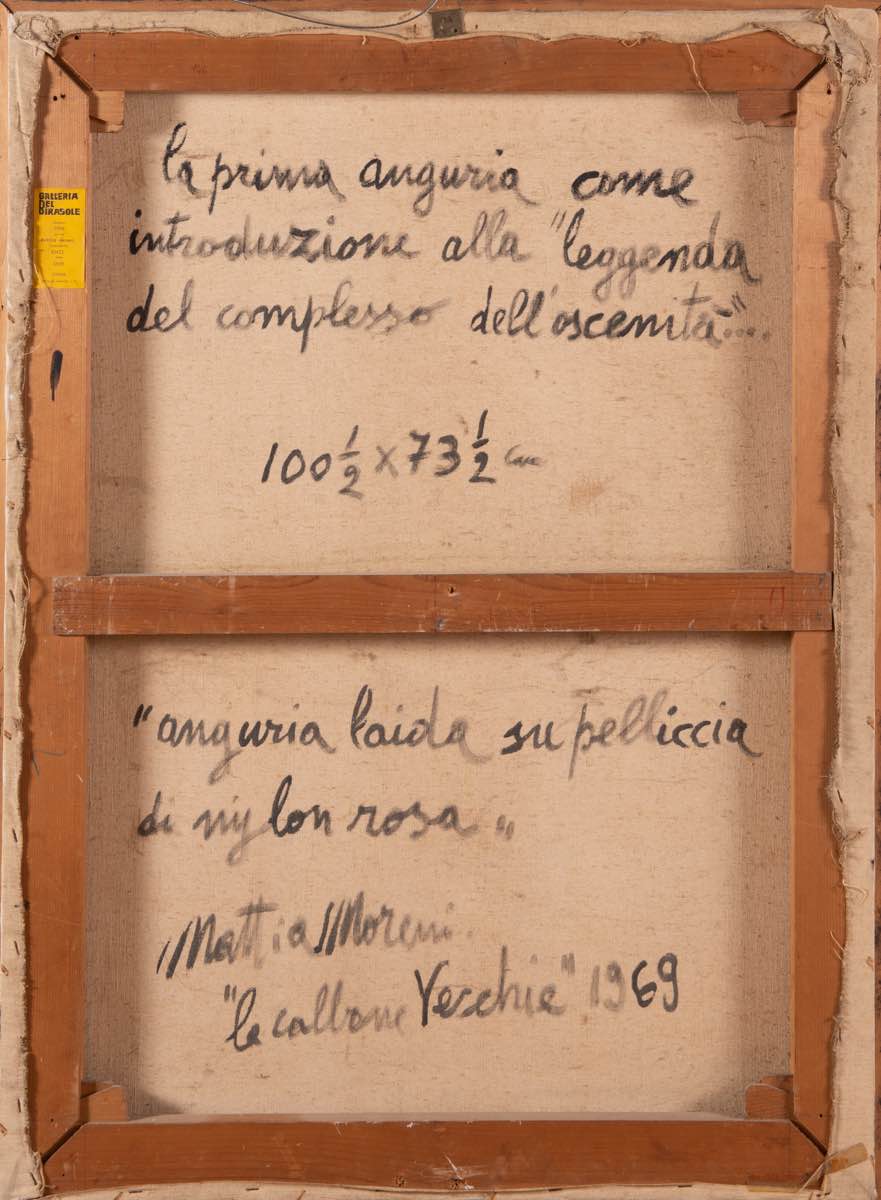 la prima anguria come
introduzione alla "leggenda
del complesso dell'oscenità"....
100 1/2 x 73 1/2 cm
"anguria laida su pelliccia
di nylon rosa"
Mattia Moreni.
"le calbane Vecchie" 1969
GALLERIA
DEL
GIRASOLE